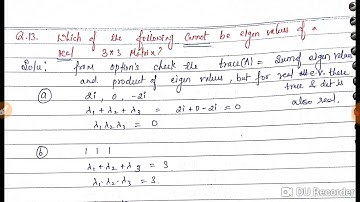 Q.13. Which of the following cannot be eigen values of a
real 3×3 Matrix?
Soln: from option's check the trace(A) = Sum of eigen value
and product of eigen values, but for real there
trace & det is
also real.
(a) 2i, 0, -2i
λ1+λ2+λ3 = 2i+0-2i = 0
λ1λ2λ3 = 0
(b) 1 1 1
λ1+λ2+λ3 = 3
λ1·λ2·λ3 = 3
DU Recorder